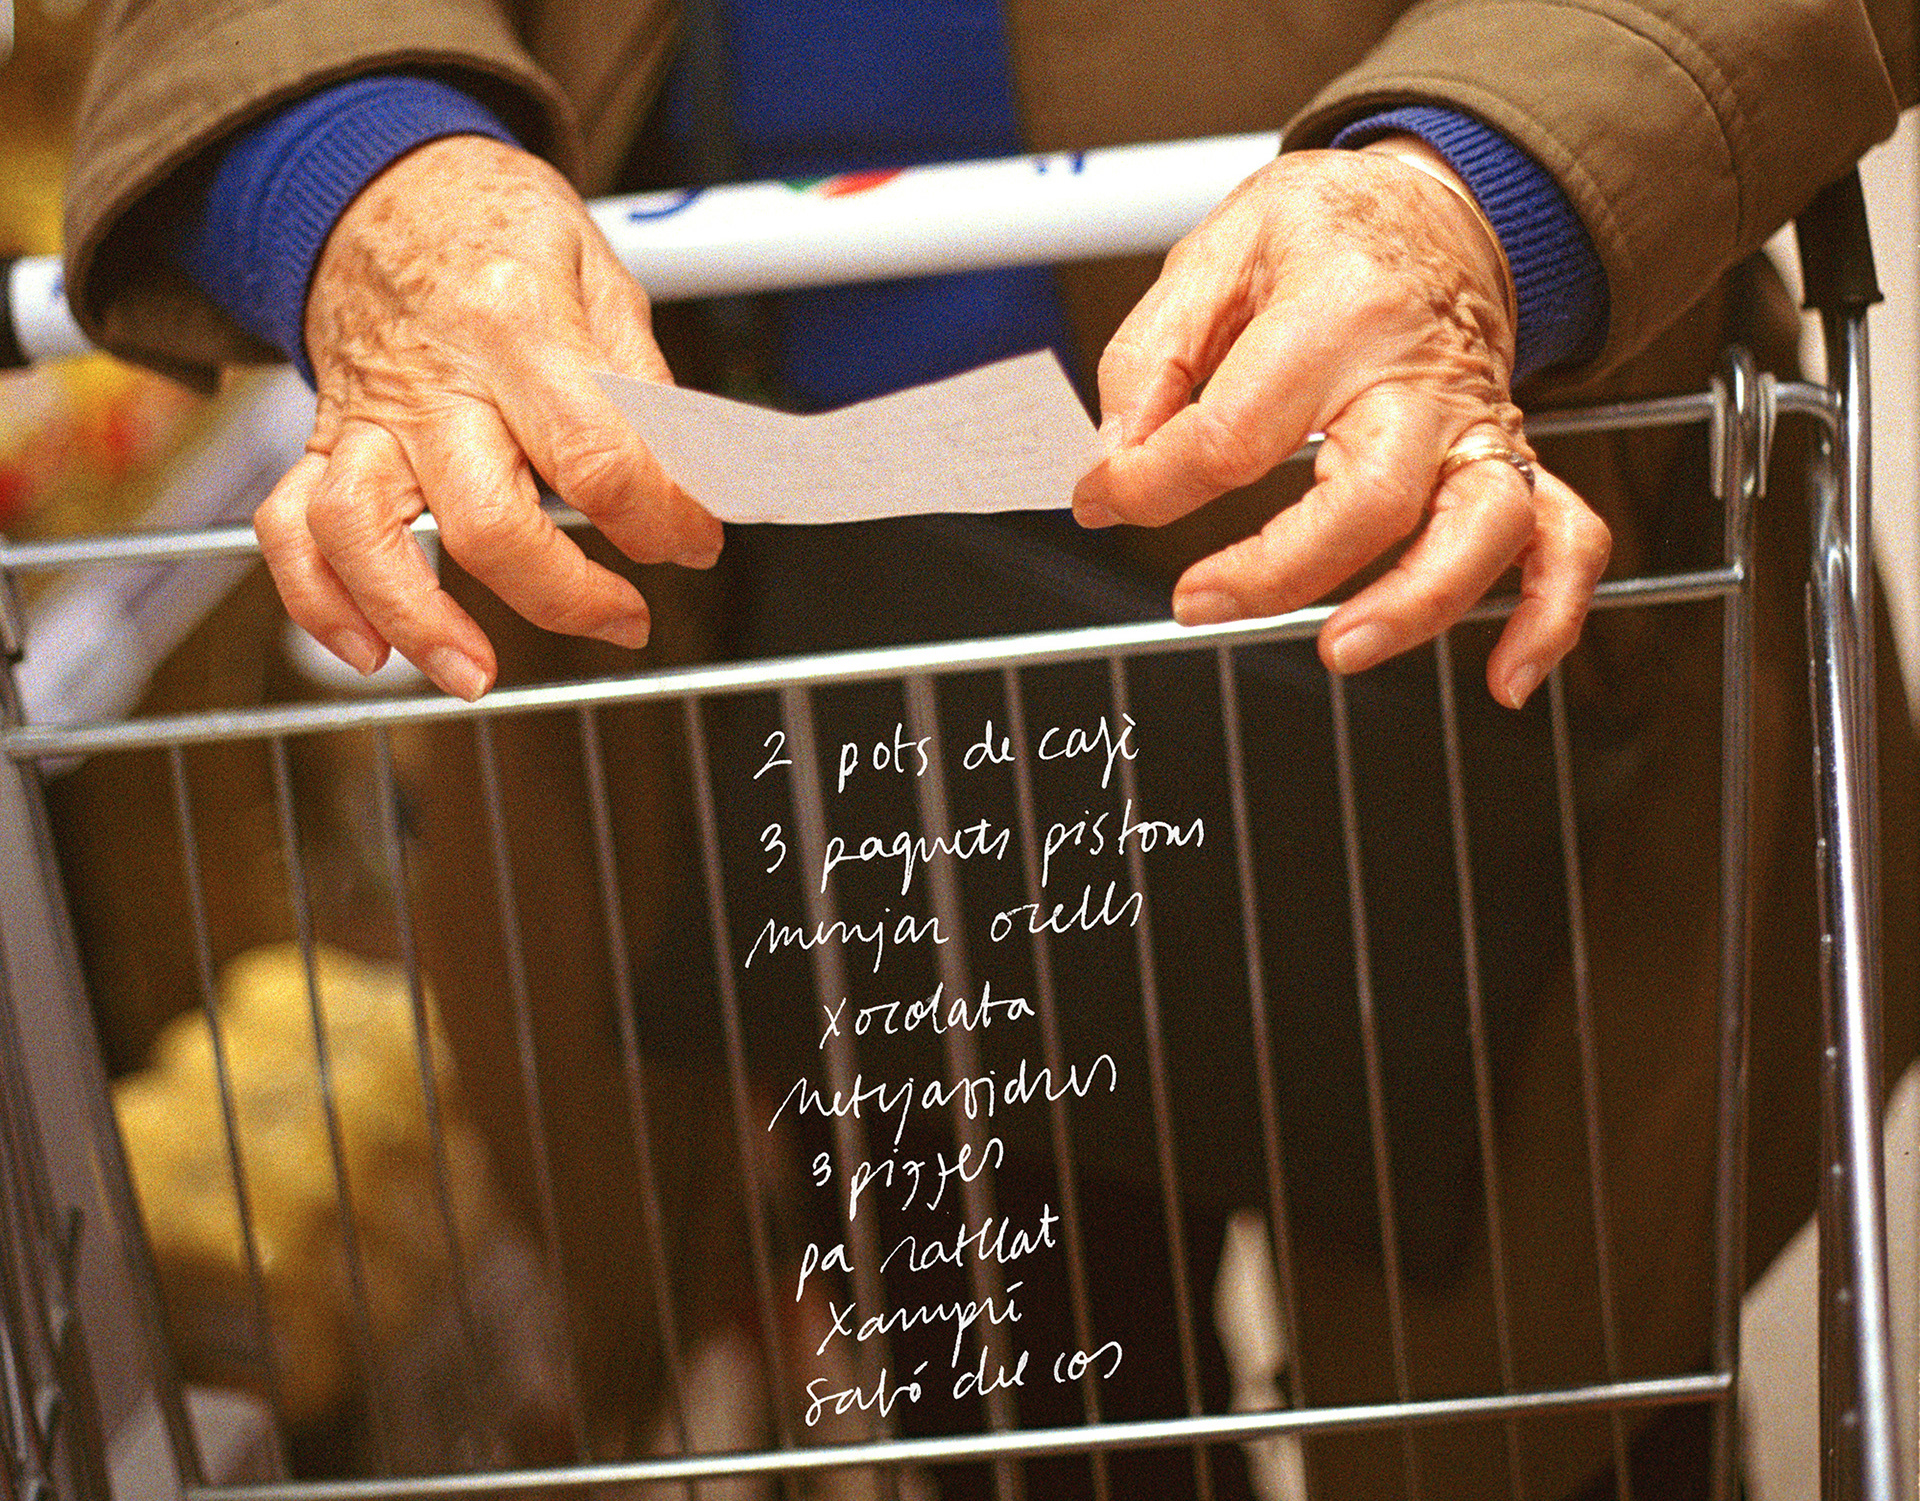 2 pots de cafè
3 paquets pistons
menjar ocells
xocolata
netejavidres
3 pizzes
pa ratllat
xampú
sabó del cos